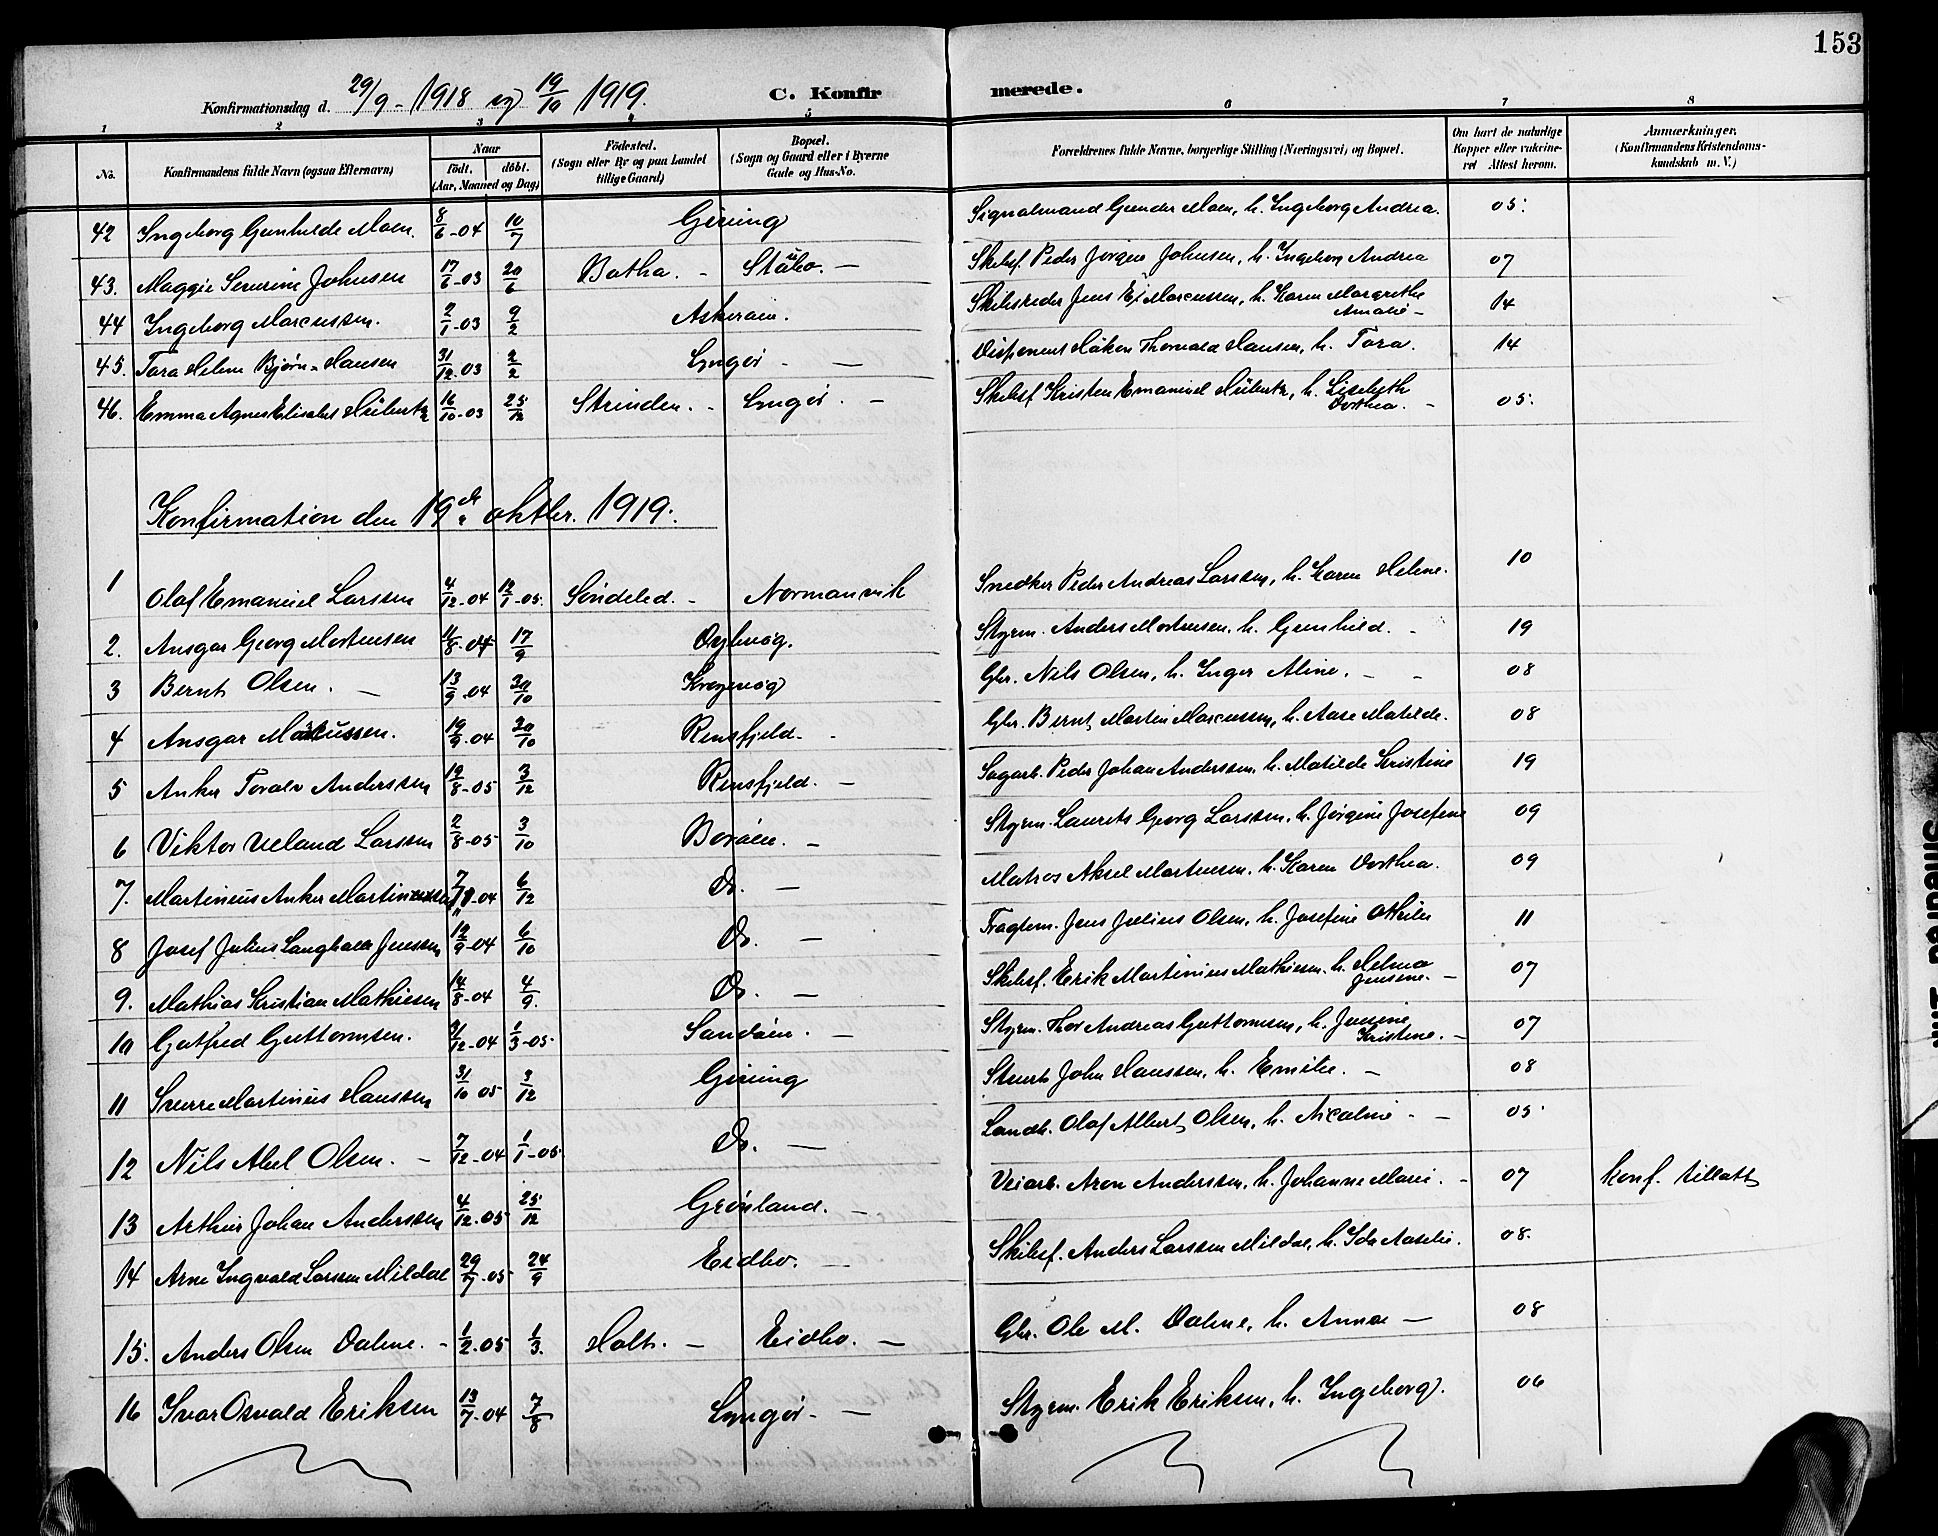 153
Konfirmationsdag d. 29/9 - 1918 og 19/10 1919. C. Konfir merede.
1 2 3 4 5 6 7 8
No. Konfirmandens fulde Navn (ogsaa Efternavn) Naar Födt. döbt. (Aar, Maaned og Dag) Födested. (Sogn eller By og paa Landet tillige Gaard) Bopæl. (Sogn og Gaard eller i Byerne Gade og Hus-No. Forældrenes fulde Navne, borgerlige Stilling (Næringsvei) og Bopæl. Om havt de naturlige Kopper eller vakcineret Attest herom. Anmærkninger. (Konfirmandens Kristendomskundskab m. V.)
42 Ingeborg Gunhilde Moen. 8/6-04 10/7 Gjeving Signalmand Gunder Moen, h. Ingeborg Andrea. 05.
43. Maggie Severine Johnsen 17/6-03 20/6 Botha. - Stabo. — Skibsf. Peder Jørgen Johnsen, h. Ingeborg Andrea 07
44 Ingeborg Marcussen. 2/1-03 9/2 Askerøen. Skibsreder Jens Ej Marcussen, h. Karen Margrethe Amalie - 14
45. Tora Helene Bjørn-Hansen 31/12-03 2/2 Lyngør - — Disponent Håkon Thorvald Hansen, h. Tora. 14
46. Emma Agnes Elisabet Hübertz 16/10-03 25/12 Strinden. - Lyngør. - Skibsf Kristen Emanuel Hübertz, h. Lisebeth Dorthea. - 05.
Konfirmation den 19de oktbr. 1919.
1 Olaf Emanuel Larssen 4/12-04 12/1-05. Søndeled. - Normanvik Snedker Peder Andreas Larssen, h. Karen Helene. 10
2. Ansgar Georg Mortensen 11/8-04 17/9 Dybvåg. Styrm. Anders Mortensen. h. Gunhild. - 19
3 Bernt Olsen. — 13/9-04 30/10 Krogevåg Gbr. Nils Olsen, h. Inger Aline. - - 08
4 Ansgar Marcussen. 19/9-04 20/10 Rensfjeld. - Gbr. Bernt Martin Marcussen, h. Aase Matilde. 08
5 Anker Toralv Anderssen 19/8-05 3/12 Rensfjeld. — Sagarb. Peder Johan Anderssen, h. Matilde Kristine 19
6 Viktor Ueland Larssen 2/8-05 3/10 Borøen. - Styrm. Laurits Georg Larssen, h. Jørgine Josefine 09
7. Martinius Anker Martinussen 7/11-04 6/12 Do. — Matros Aksel Martinsen. h. Karen Dorthea. 09
8 Josef Julius Langhaae Jenssen 12/9-04 6/10 Do. — Fragtem. Jens Julius Olsen, h. Josefine Othilie 11
9. Mathias Kristian Mathiesen 14/8-04 4/9. Do. — Skibsf. Erik Martinius Mathiesen. h. Helma Jensine. - 07
10 Gutfred Guttormsen. 31/12-04 1/3-05. Sandøen. — Styrm. Thor Andreas Guttormsen, h. Jensine Kristine. - 07
11 Sverre Martinius Hanssen 31/10 05 3/12 Gjeving Stuert John Hanssen, h. Emilie. - 08
12 Nils Abel Olsen. - 7/12-04 1/1-05 Do. — Landh. Olaf Albert Olsen, h. Nicoline - - 05.
13 Arthur Johan Anderssen 4/12-05 25/12 Grønland. - Veiarb. Aron Anderssen, h. Johanne Marie. - 07 konf. tillatt
14 Arne Ingvald Larssen Mildal 29/7-05 24/9 Eidbo. — Skibsf. Anders Larssen Mildal, h. Ida Aaselie. 08.
15. Anders Olsen Dalene. - 1/2-05 1/3. Holt. — Eidbo. — Gbr. Ole M. Dalene, h. Anna — 08
16 Ivar Osvald Eriksen 13/7-04 7/8 Lyngør. — Styrm. Erik Eriksen, h. Ingeborg. 06